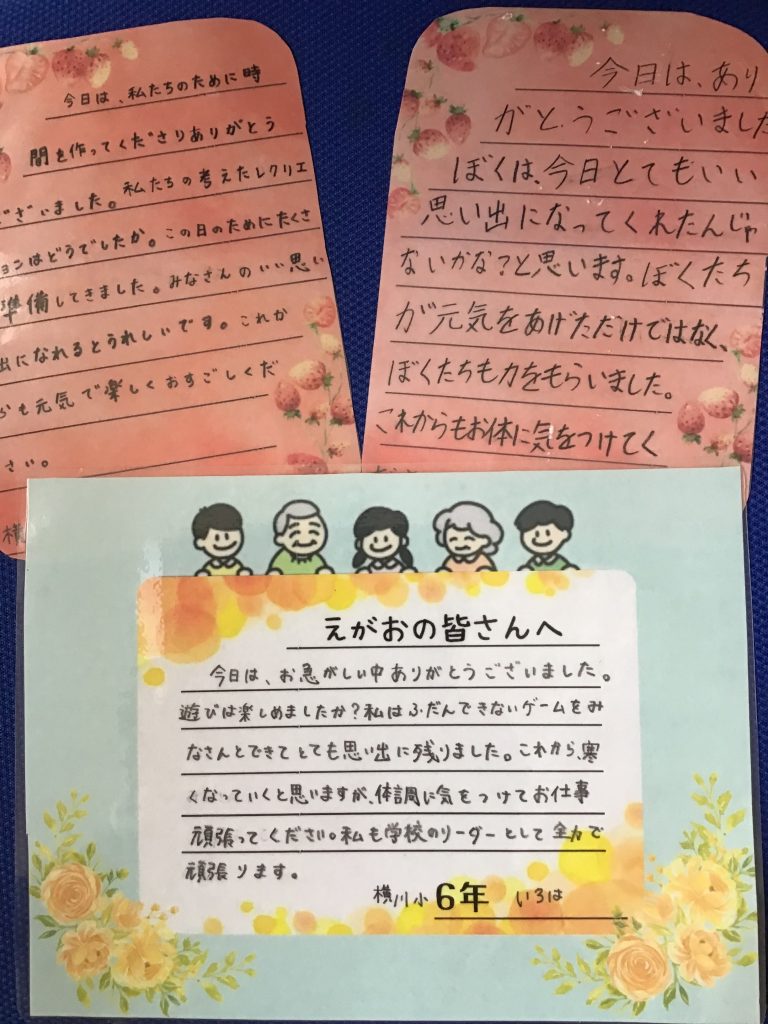 今日は、私たちのために時
間を作ってくださりありがとう
ございました。私たちの考えたレクリエ
ョンはどうでしたか。この日のためにたくさ
準備してきました。みなさんのいい思い
出になれるとうれしいです。これか
らも元気で楽しくおすごしくだ
さい。
横
今日は、あり
がとうございました
ぼくは、今日とてもいい
思い出になってくれたんじゃ
ないかな?と思います。ぼくたち
が元気をあげただけではなく、
ぼくたちも力をもらいました。
これからもお体に気をつけてく
えがおの皆さんへ
今日は、お急がしい中ありがとうございました。
遊びは楽しめましたか?私はふだんできないゲームをみ
なさんとできてとても思い出に残りました。これから、寒
くなっていくと思いますが、体調に気をつけてお仕事
頑張ってください。私も学校のリーダーとして全力で
頑張ります。
横川小 6年 いろは